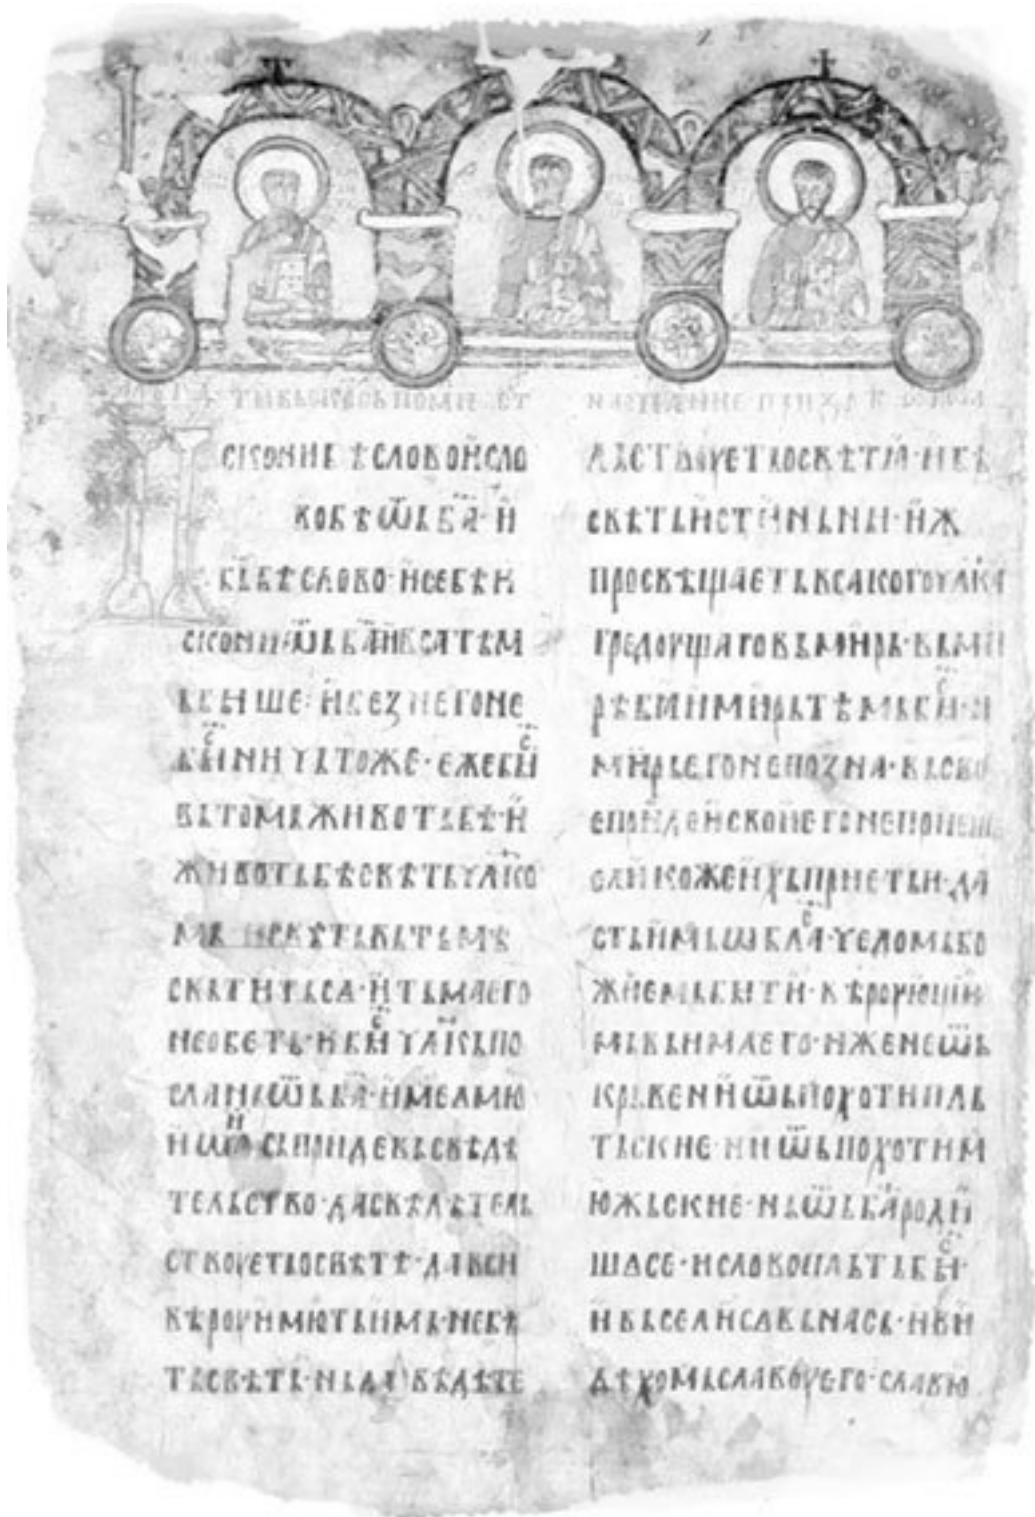 сконибѣслово҆исло
вобѣѿьба·и
бь҆бѣслово·исебѣи
скони·ѿьба҆ивсатѣм
бьише·ибезнегоне
бы҆ничьтоже·ежебы҆
вьтомьживотьбѣ·и
животьбѣсвѣтьчл҃ко
мь·исвѣтьвьтьмѣ
свьтитьса·итьмаего
необеть·ибы҆чл҃кьпо
сланьѿьба·имеемю
сьпридевьсвѣдѣ
тельство·дасвѣдѣтель
ствоуетьосвѣтѣ·давси
вѣроуимютьимь·небѣ
тьсвѣть·ньдасвѣдѣте
льствоуетьосвѣтѧ·ибѣ
свѣтьистиньни·иж
просвѣщаетьвсакогочл҃ка
гредоущаговьмирь·вьми
рѣбѣимирьтѣмьбы҆·и
мирьегонепозна·вьсво
еприде҆исвоиегонеприеше
еликожеихьприеть҆и·да
стьимьѡблa·чедомьбо
жиемьбыти·вѣроующи
мьвьимаего·иженеѿь
крьвениѿьпохотипль
тьские·ниѿьпохотим
южьские·ньѿьбароди
шасе·исловопльтьбы҆·
ивьселисавьнась·иви
дѣхомьславоуего·славю